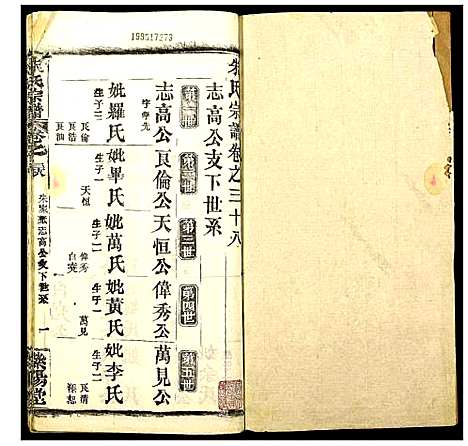 朱氏宗譜卷之三十八
志高公支下世系
第一世
第二世
第三世
第四世
第五世
志高公
字
良倫公
天恒公
偉秀公
萬見公
妣羅氏
生子三
良倫
良浩
良汕
妣畢氏
生子一
天恒
妣萬氏
生子二
偉秀
妣黃氏
生子一
萬見
妣李氏
生子二
良清
朱氏宗譜
卷之
朱家漈志高公支下世系
一
樂陽堂